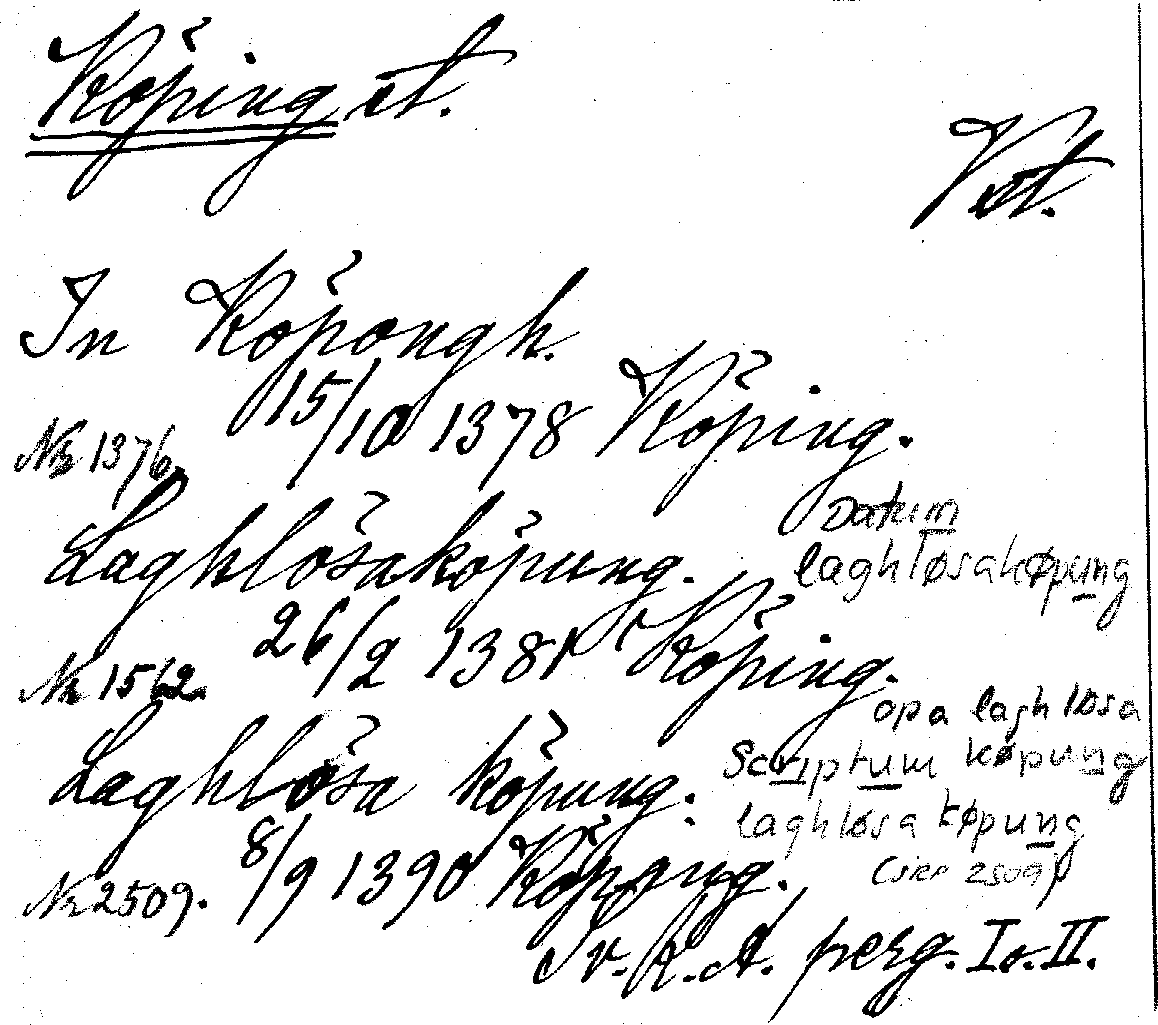 Köping st.
Vst.
In Köpongh.
15/10 1378 Köping.
Nr 1376.
Laghlösaköpung.
Datum
laghløsakøpung
26/2 1381 Köping.
Nr 1562.
opa laghløsa
Laghlösa köpung.
Scriptum køpung
laghløsa køpung
8/9 1390 Köpung.
Nr 2509.
2509
Sv. R. A. perg. I o. II.